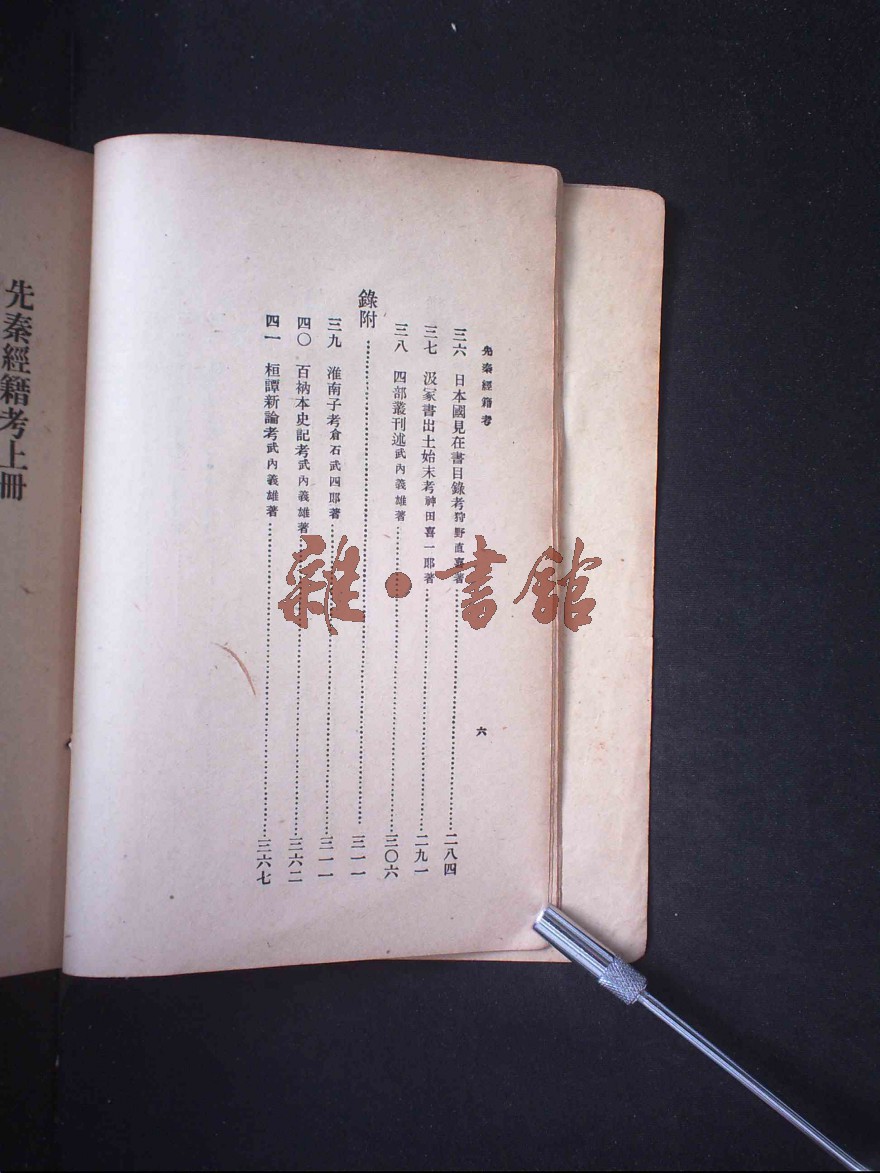 先秦經籍考
六
三六 日本國見在書目錄考狩野直喜著……二八四
三七 汲冢書出土始末考神田喜一郎著……二九一
三八 四部叢刊述武內義雄著……三〇六
錄附……三一一
三九 淮南子考倉石武四郎著……三一一
四〇 百衲本史記考武內義雄著……三六二
四一 桓譚新論考武內義雄著……三六七
先秦經籍考上冊
雜·書館